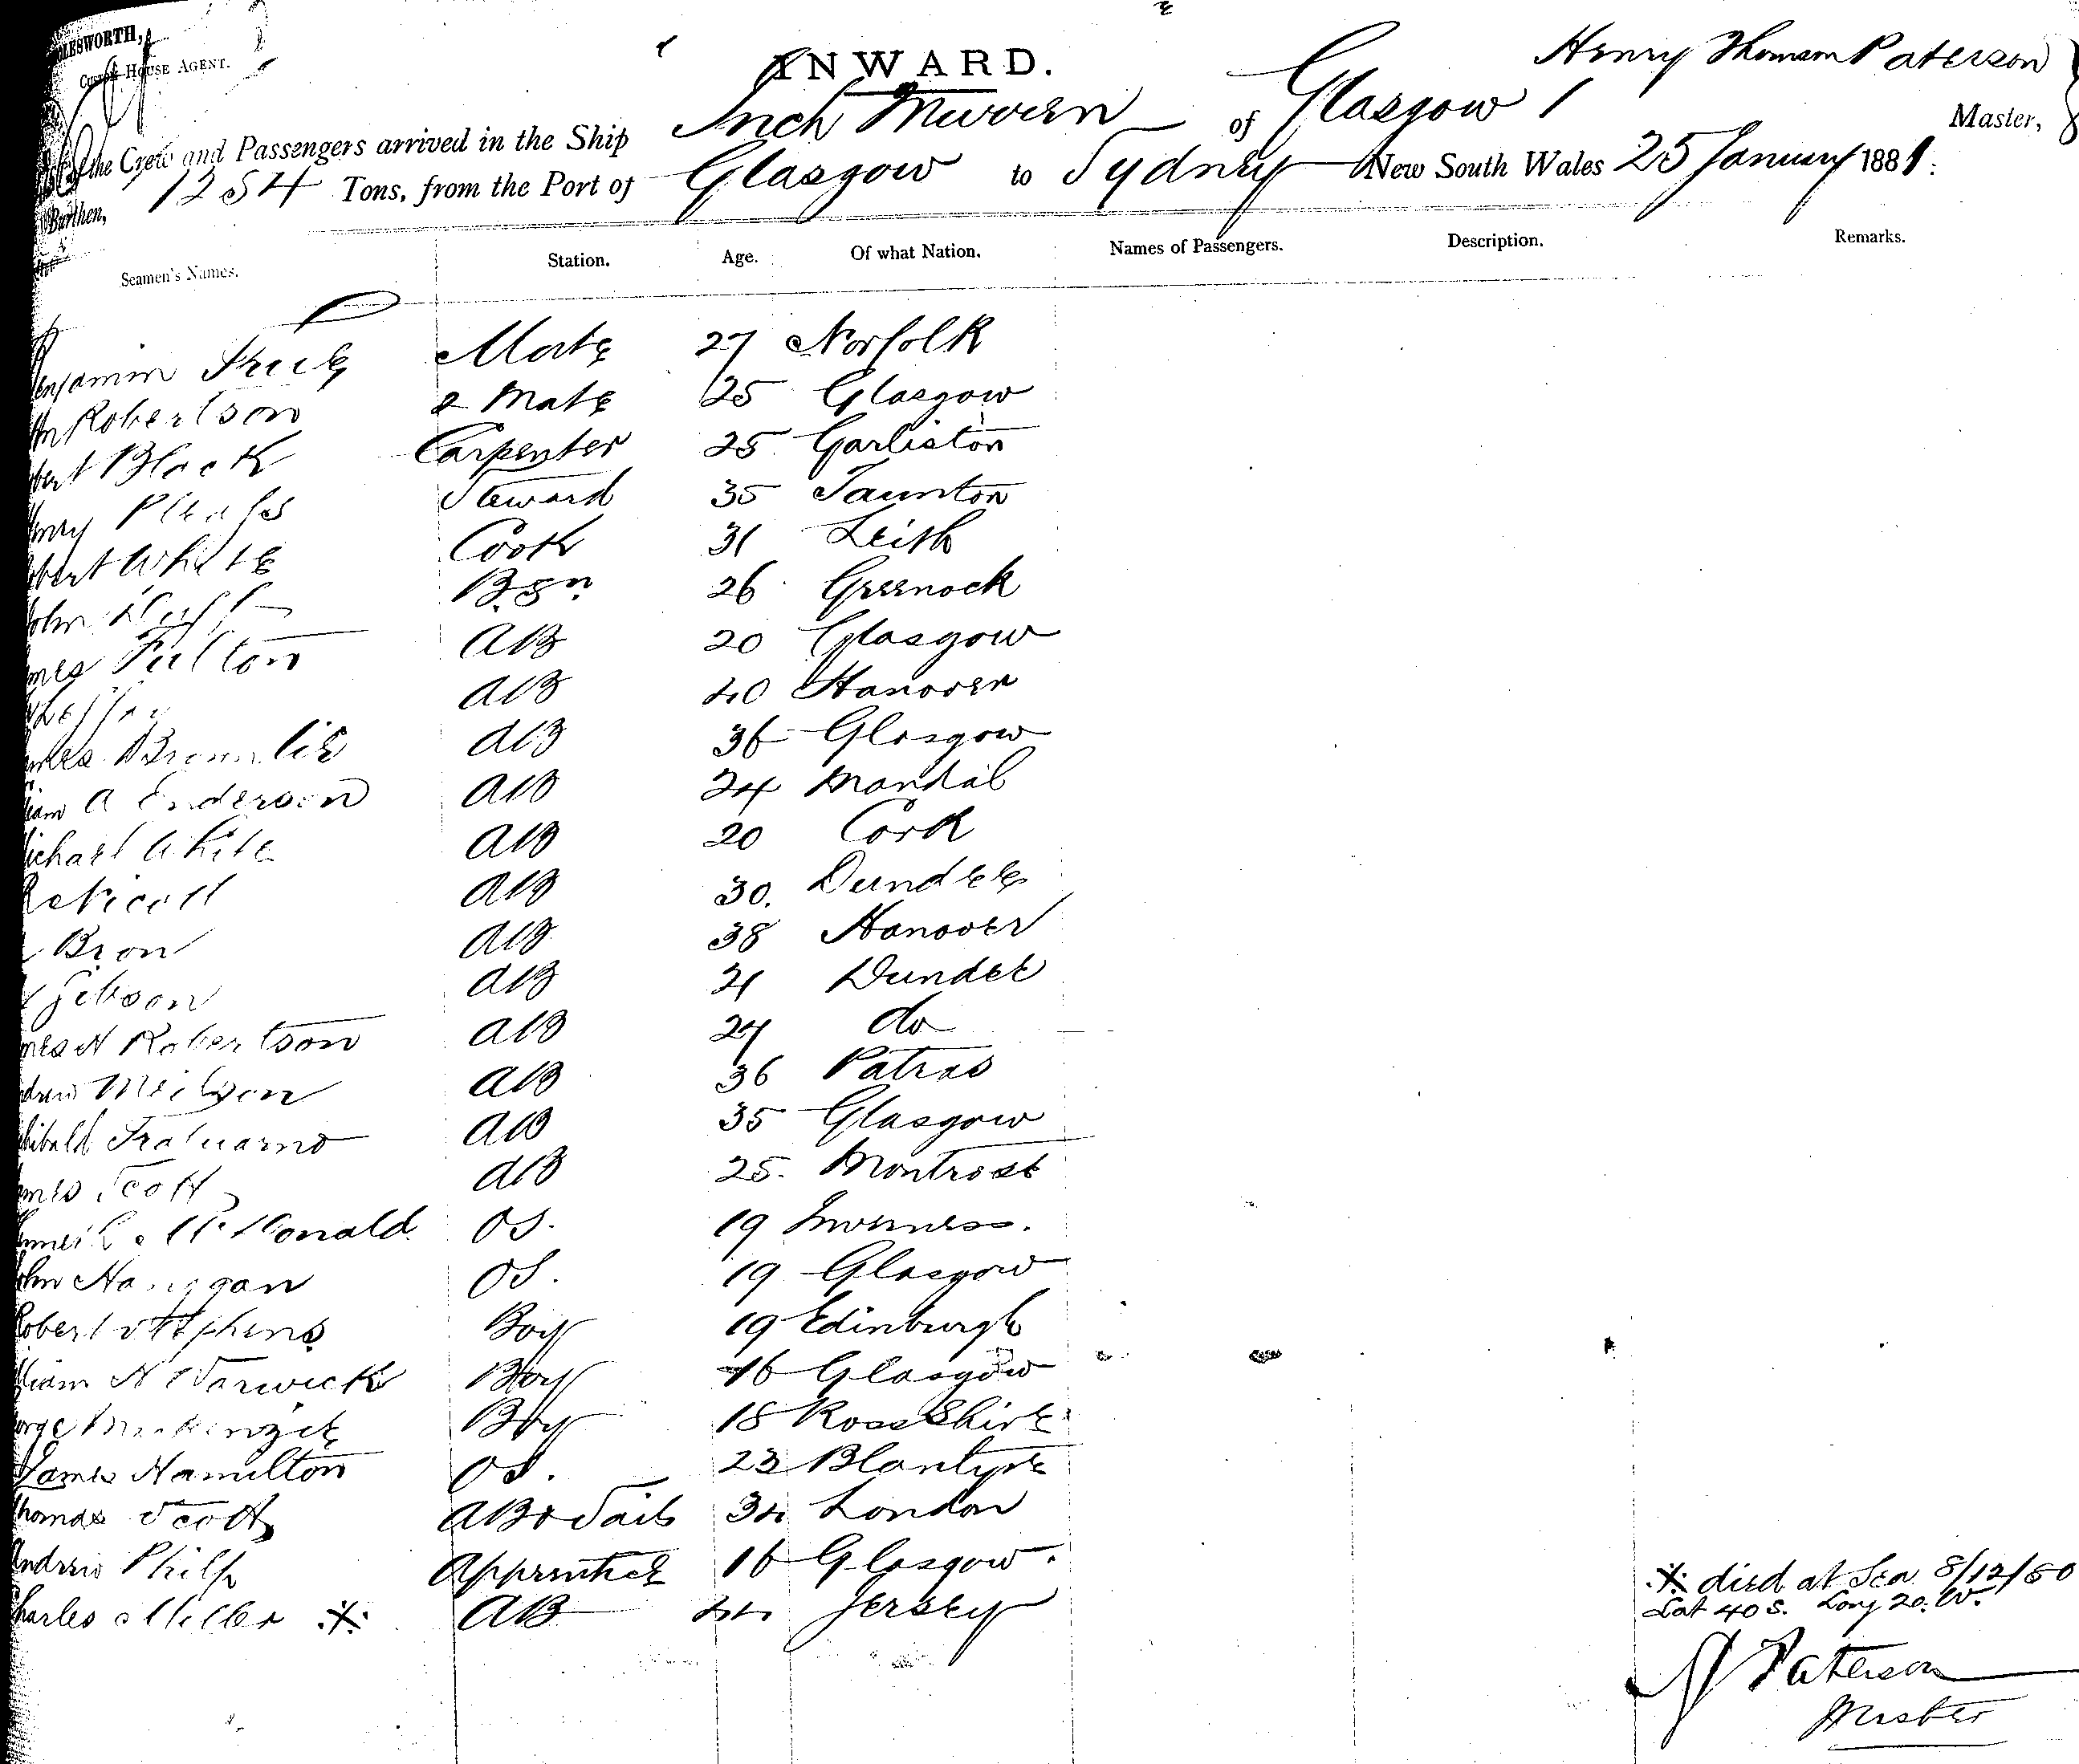 LESWORTH,
CUSTOM HOUSE AGENT.
INWARD.
Henry Thomson Paterson
of the Crew and Passengers arrived in the Ship Inch Murren of Glasgow / Master,
Burthen, 1254 Tons, from the Port of Glasgow to Sydney New South Wales 25 January 1881.
Seamen's Names. Station. Age. Of what Nation. Names of Passengers. Description. Remarks.
enjamin Mate 27 Norfolk
Robertson 2 Mate 25 Glasgow
bert Black Carpenter 25 Garliston
enry Steward 35 Taunton
obert White Cook 31 Leith
ohn Bsn 26 Greenock
mes Fulton AB 20 Glasgow
AB 40 Hanover
mes Brownlie AB 36 Glasgow
liam A Enderson AB 24 Mandal
ichael White AB 20 Cork
Nicoll AB 30. Dundee
Bron AB 38 Hanover
Gibson AB 21 Dundee
mes N Robertson AB 24 do
drew AB 36 Patras
hibald AB 35 Glasgow
mes Scott AB 25. Montrose
McDonald OS. 19 Inverness.
ohn Hanigan OS. 19 Glasgow
Robert Stephens Boy 19 Edinburgh
liam N Warwick Boy 16 Glasgow
orge Mackenzie Boy 18 Ross Shire
James Hamilton OS. 23 Blantyre
Thomas Scott AB & Sails 34 London
Andrew Philp Apprentice 16 Glasgow.
Charles Miller ※ AB 44 Jersey
※ died at Sea 8/12/80
Lat 40 S. Long 20. W.
H Paterson
Master